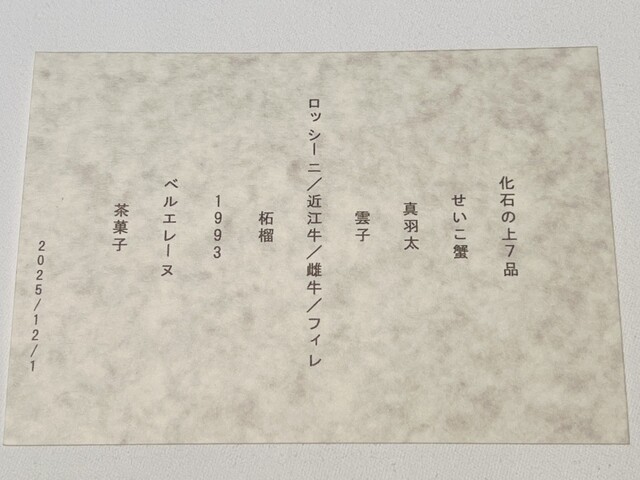 化石の上7品
せいこ蟹
真羽太
雲子
ロッシーニ/近江牛/雌牛/フィレ
柘榴
1993
ベルエレーヌ
茶菓子
2025/12/1